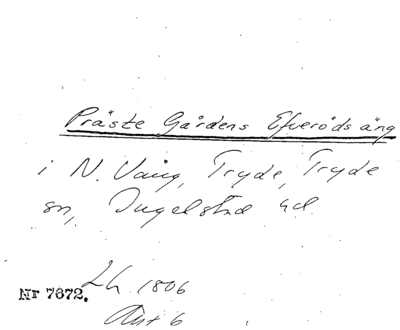 Präste Gårdens Efveröds äng
i N. Vång, Tryde, Tryde
sn, Ingelstad hd.
Lh 1806
Nr 7672.
Akt 6